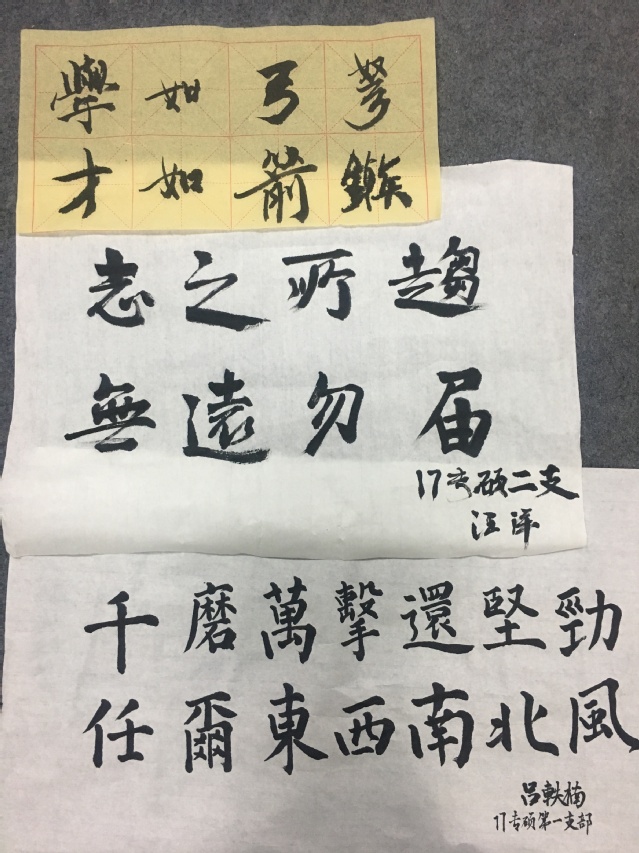 學如弓弩
才如箭鏃
志之所趨
無遠勿届
17专硕二支
汪洋
千磨萬擊還堅勁
任爾東西南北風
吕軼楠
17专硕第一支部